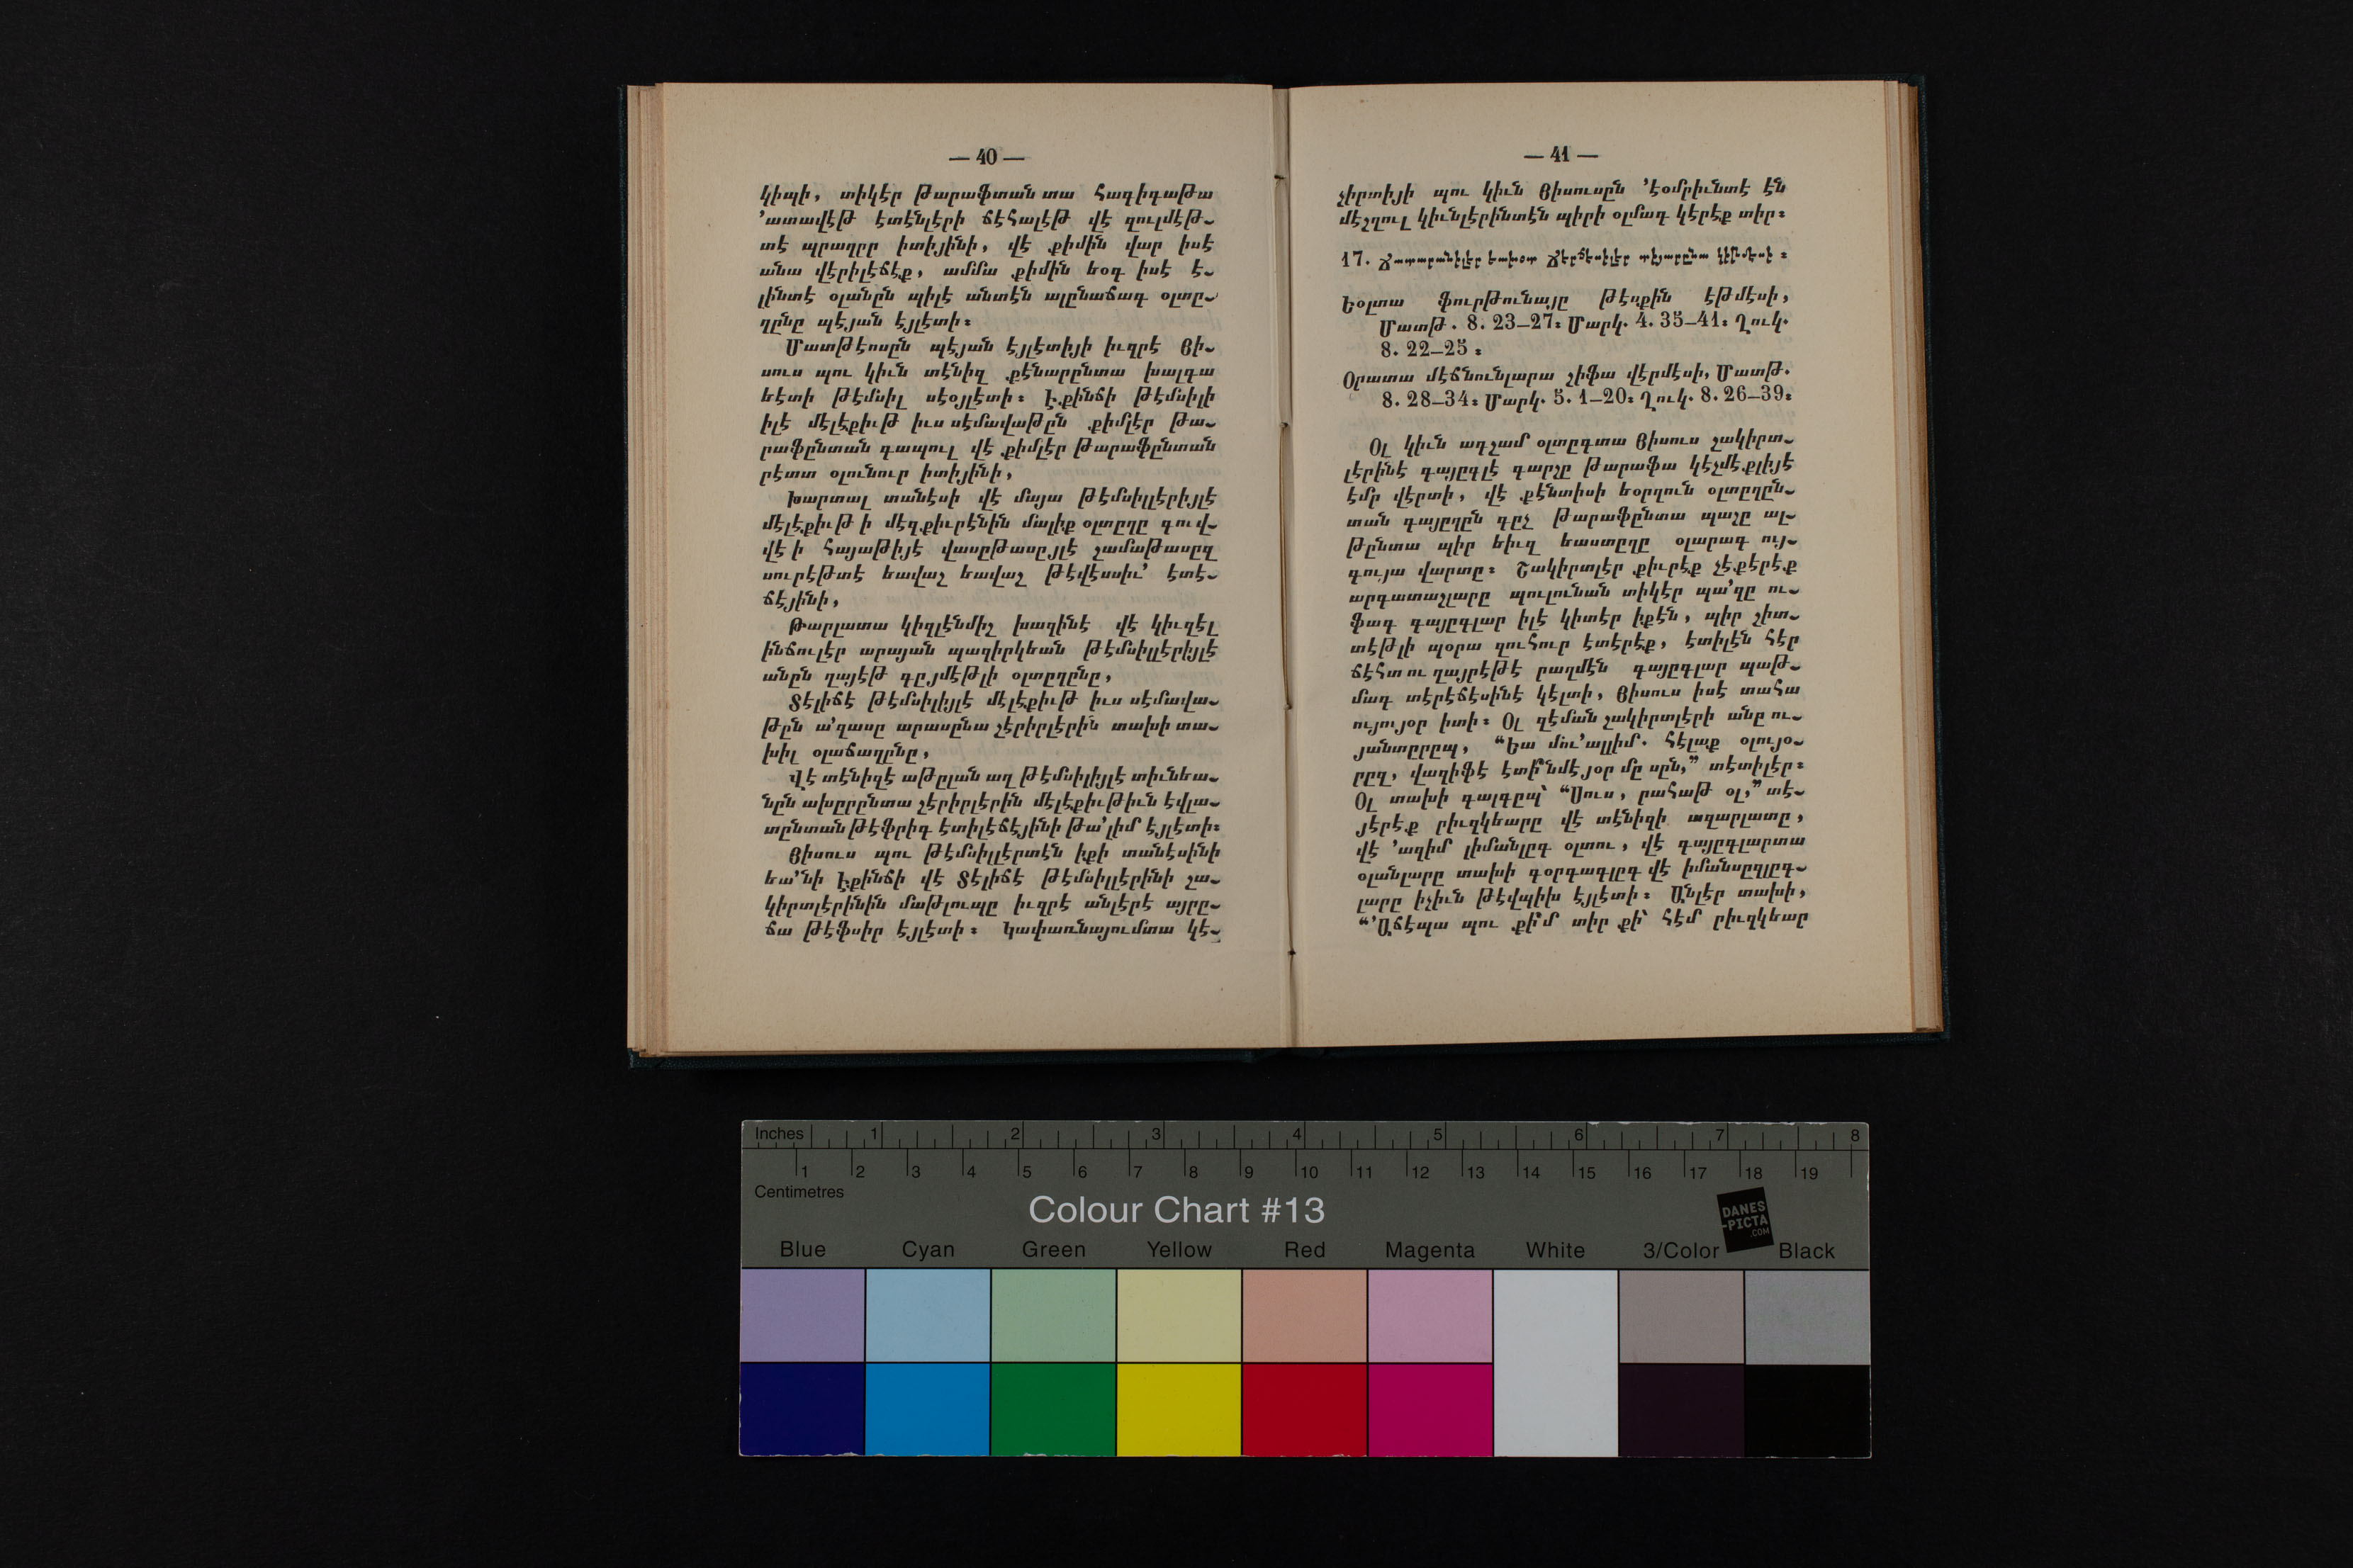 — 40 —
կիպի, տիկէր թարաֆտան տա հագիգաթա
՚ատավէթ էտէնլէրի ճէհալէթ վէ զուլմէթ֊
տէ պրաղըր իտիյինի, վէ քիմին վար իսէ
անա վէրիլէճէք, ամմա քիմին եօգ իսէ է֊
լինտէ օլանըն պիլէ անտէն ալընաճագ օլտը֊
ղընը պէյան էյլէտի։
Մատթէոսըն պէյան էյլէտիյի իւզրէ Յի֊
սուս պու կիւն տէնիզ քէնարընտա խալգա
եէտի թէմսիլ սէօյլէտի։ Էքինճի թէմսիլի
իլէ մէլէքիւթ իւս սէմավաթըն քիմլէր թա֊
րաֆընտան գապուլ վէ քիմլէր թարաֆընտան
րէտտ օլունուր իտիյինի,
Խարտալ տանէսի վէ մայա թէմսիլլէրիյլէ
մէլէքիւթ ի մէզքիւրէնին մալիք օլտըղը գուվ֊
վէ ի հայաթիյէ վասըթասըյլէ շամաթասըզ
սուրէթտէ եավաշ եավաշ թէվէսսիւ՚ էտէ֊
ճէյինի,
Թարլատա կիզլէնմիշ խազինէ վէ կիւզէլ
ինճուլէր արայան պազիրկեան թէմսիլլէրիյլէ
անըն ղայէթ գըյմէթլի օլտըղընը,
Տէլիճէ թէմսիլիյլէ մէլէքիւթ իւս սէմավա֊
թըն ա՚զասը արասընա շէրիրլէրին տախի տա֊
խիլ օլաճաղընը,
Վէ տէնիզէ աթըլան աղ թէմսիլիյլէ տիւնեա֊
նըն ախըրընտա շէրիրլէրին մէլէքիւթիւն էվլա֊
տընտան թէֆրիգ էտիլէճէյինի թա՚լիմ էյլէտի։
Յիսուս պու թէմսիլլէրտէն իքի տանէսինի
եա՚նի Էքինճի վէ Տէլիճէ թէմսիլլէրինի շա֊
կիրտլէրինին մաթլուպը իւզրէ անլէրէ այրը֊
ճա թէֆսիր էյլէտի։ Կափառնայումտա կէ֊
— 41 —
չիրտիյի պու կիւն Յիսուսըն ՚էօմրիւնտէ էն
մէշղուլ կիւնլէրինտէն պիրի օլմագ կէրէք տիր։
17. Ճատարանէլէր եախօտ Ճէրճէսէլէր տէյարընա կէթմէսի։
Եօլտա ֆուրթունայը թէսքին էթմէսի,
Մատթ. 8. 23–27։ Մարկ. 4. 35–41։ Ղուկ.
8. 22–25։
Օրատա մէճնունլարա շիֆա վէրմէսի, Մատթ.
8. 28–34։ Մարկ. 5. 1–20։ Ղուկ. 8. 26–39։
Օլ կիւն ագշամ օլտըգտա Յիսուս շակիրտ֊
լէրինէ գայըգլէ գարշը թարաֆա կէչմէքլիյէ
էմր վէրտի, վէ քէնտիսի եօրղուն օլտըղըն֊
տան գայըղըն գըչ թարաֆընտա պաշը ալ֊
թընտա պիր եիւզ եաստըղը օլարագ ույ֊
գույա վարտը։ Շակիրտլէր քիւրէք չէքէրէք
արգատաշլարը պուլունան տիկէր պա՚զը ու֊
ֆագ գայըգլար իլէ կիտէր իքէն, պիր շիտ֊
տէթլի պօրա զուհուր էտէրէք, էտիլէն հէր
ճէհտ ու ղայրէթէ րաղմէն գայըգլար պաթ֊
մագ տէրէճէսինէ կէլտի, Յիսուս իսէ տահա
ույույօր իտի։ Օլ զէման շակիրտլէրի անը ու֊
յանտըրըպ, “Եա մու՚ալլիմ. հէլաք օլույօ֊
րըզ, վազիֆէ էտի՞նմէյօր մը սըն,” տէտիլէր։
Օլ տախի գալգըպ՝ “Սուս, րահաթ օլ,” տէ֊
յէրէք րիւզկեարը վէ տէնիզի ազարլատը,
վէ ՚ազիմ լիմանլըգ օլտու, վէ գայըգլարտա
օլանլարը տախի գօրգագլըգ վէ իմանսըզլըգ֊
լարը իչիւն թէվպիխ էյլէտի։ Անլէր տախի,
“՚Աճէպա պու քի՞մ տիր քի՝ հէմ րիւզկեար
Inches 1 2 3 4 5 6 7 8
1 2 3 4 5 6 7 8 9 10 11 12 13 14 15 16 17 18 19
Centimetres
Colour Chart #13
DANES
-PICTA
.COM
Blue Cyan Green Yellow Red Magenta White 3/Color Black